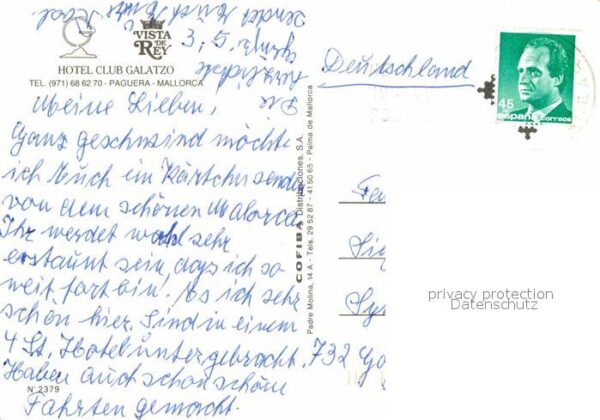 VISTA
DE
REY
HOTEL CLUB GALATZO
TEL. (971) 68 62 70 - PAGUERA - MALLORCA
Meine Lieben,
Ganz geschwind möchte
ich Euch ein Kärtchen send
von dem schönen Malorca
Ihr werdet wohl sehr
erstaunt sein, dass ich so
weit fort bin! Es ich sehr
schön hier. Sind in einem
4 St. Hotel untergebracht.
Haben auch schon schöne
Fahrten gemacht.
Nº 2379
COFIBA Distribuciones, S.A.
Padre Molina, 14 A - Tels. 29 52 87 - 41 50 65 - Palma de Mallorca
Deutschland
45
españa correos
732 Gö
privacy protection
Datenschutz